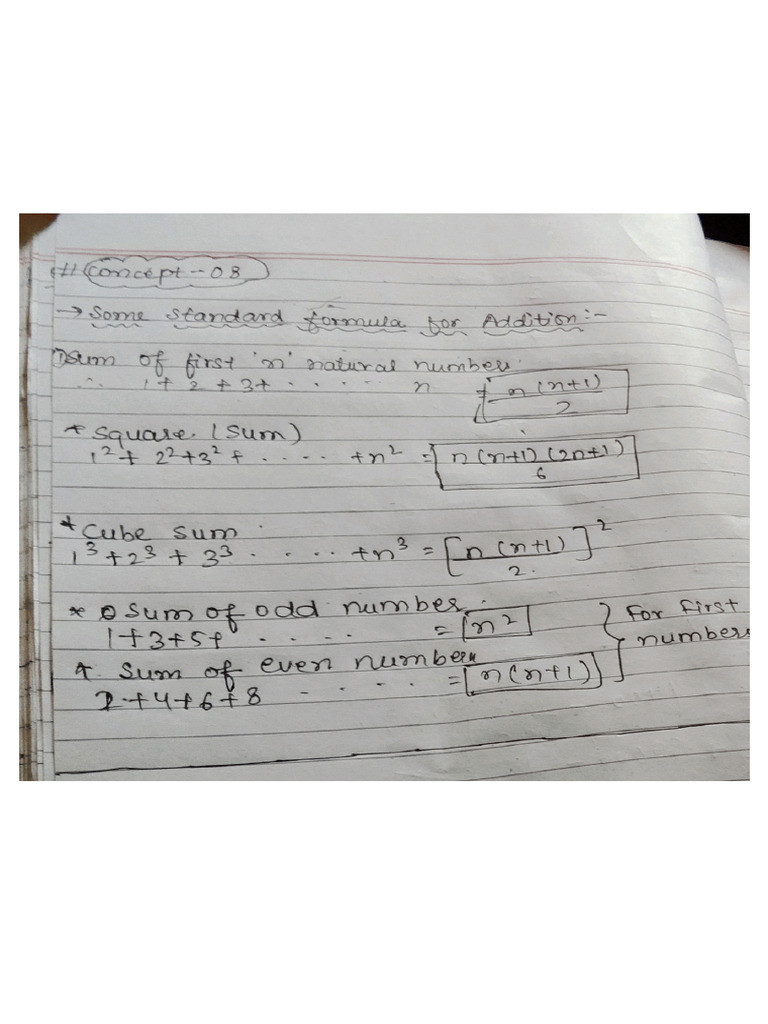 # Concept - 08
→ Some standard formula for Addition:-
1) Sum of first 'n' natural number.
∴ 1 + 2 + 3 + . . . . . n = n(n+1)/2
* Square (Sum)
1² + 2² + 3² + . . . . + n² = n(n+1)(2n+1)/6
* Cube sum.
1³ + 2³ + 3³ . . . . . + n³ = [n(n+1)/2]²
* Sum of odd number.
1 + 3 + 5 + . . . . . = n²
* Sum of even number
2 + 4 + 6 + 8 . . . . = n(n+1)
} For first numbers